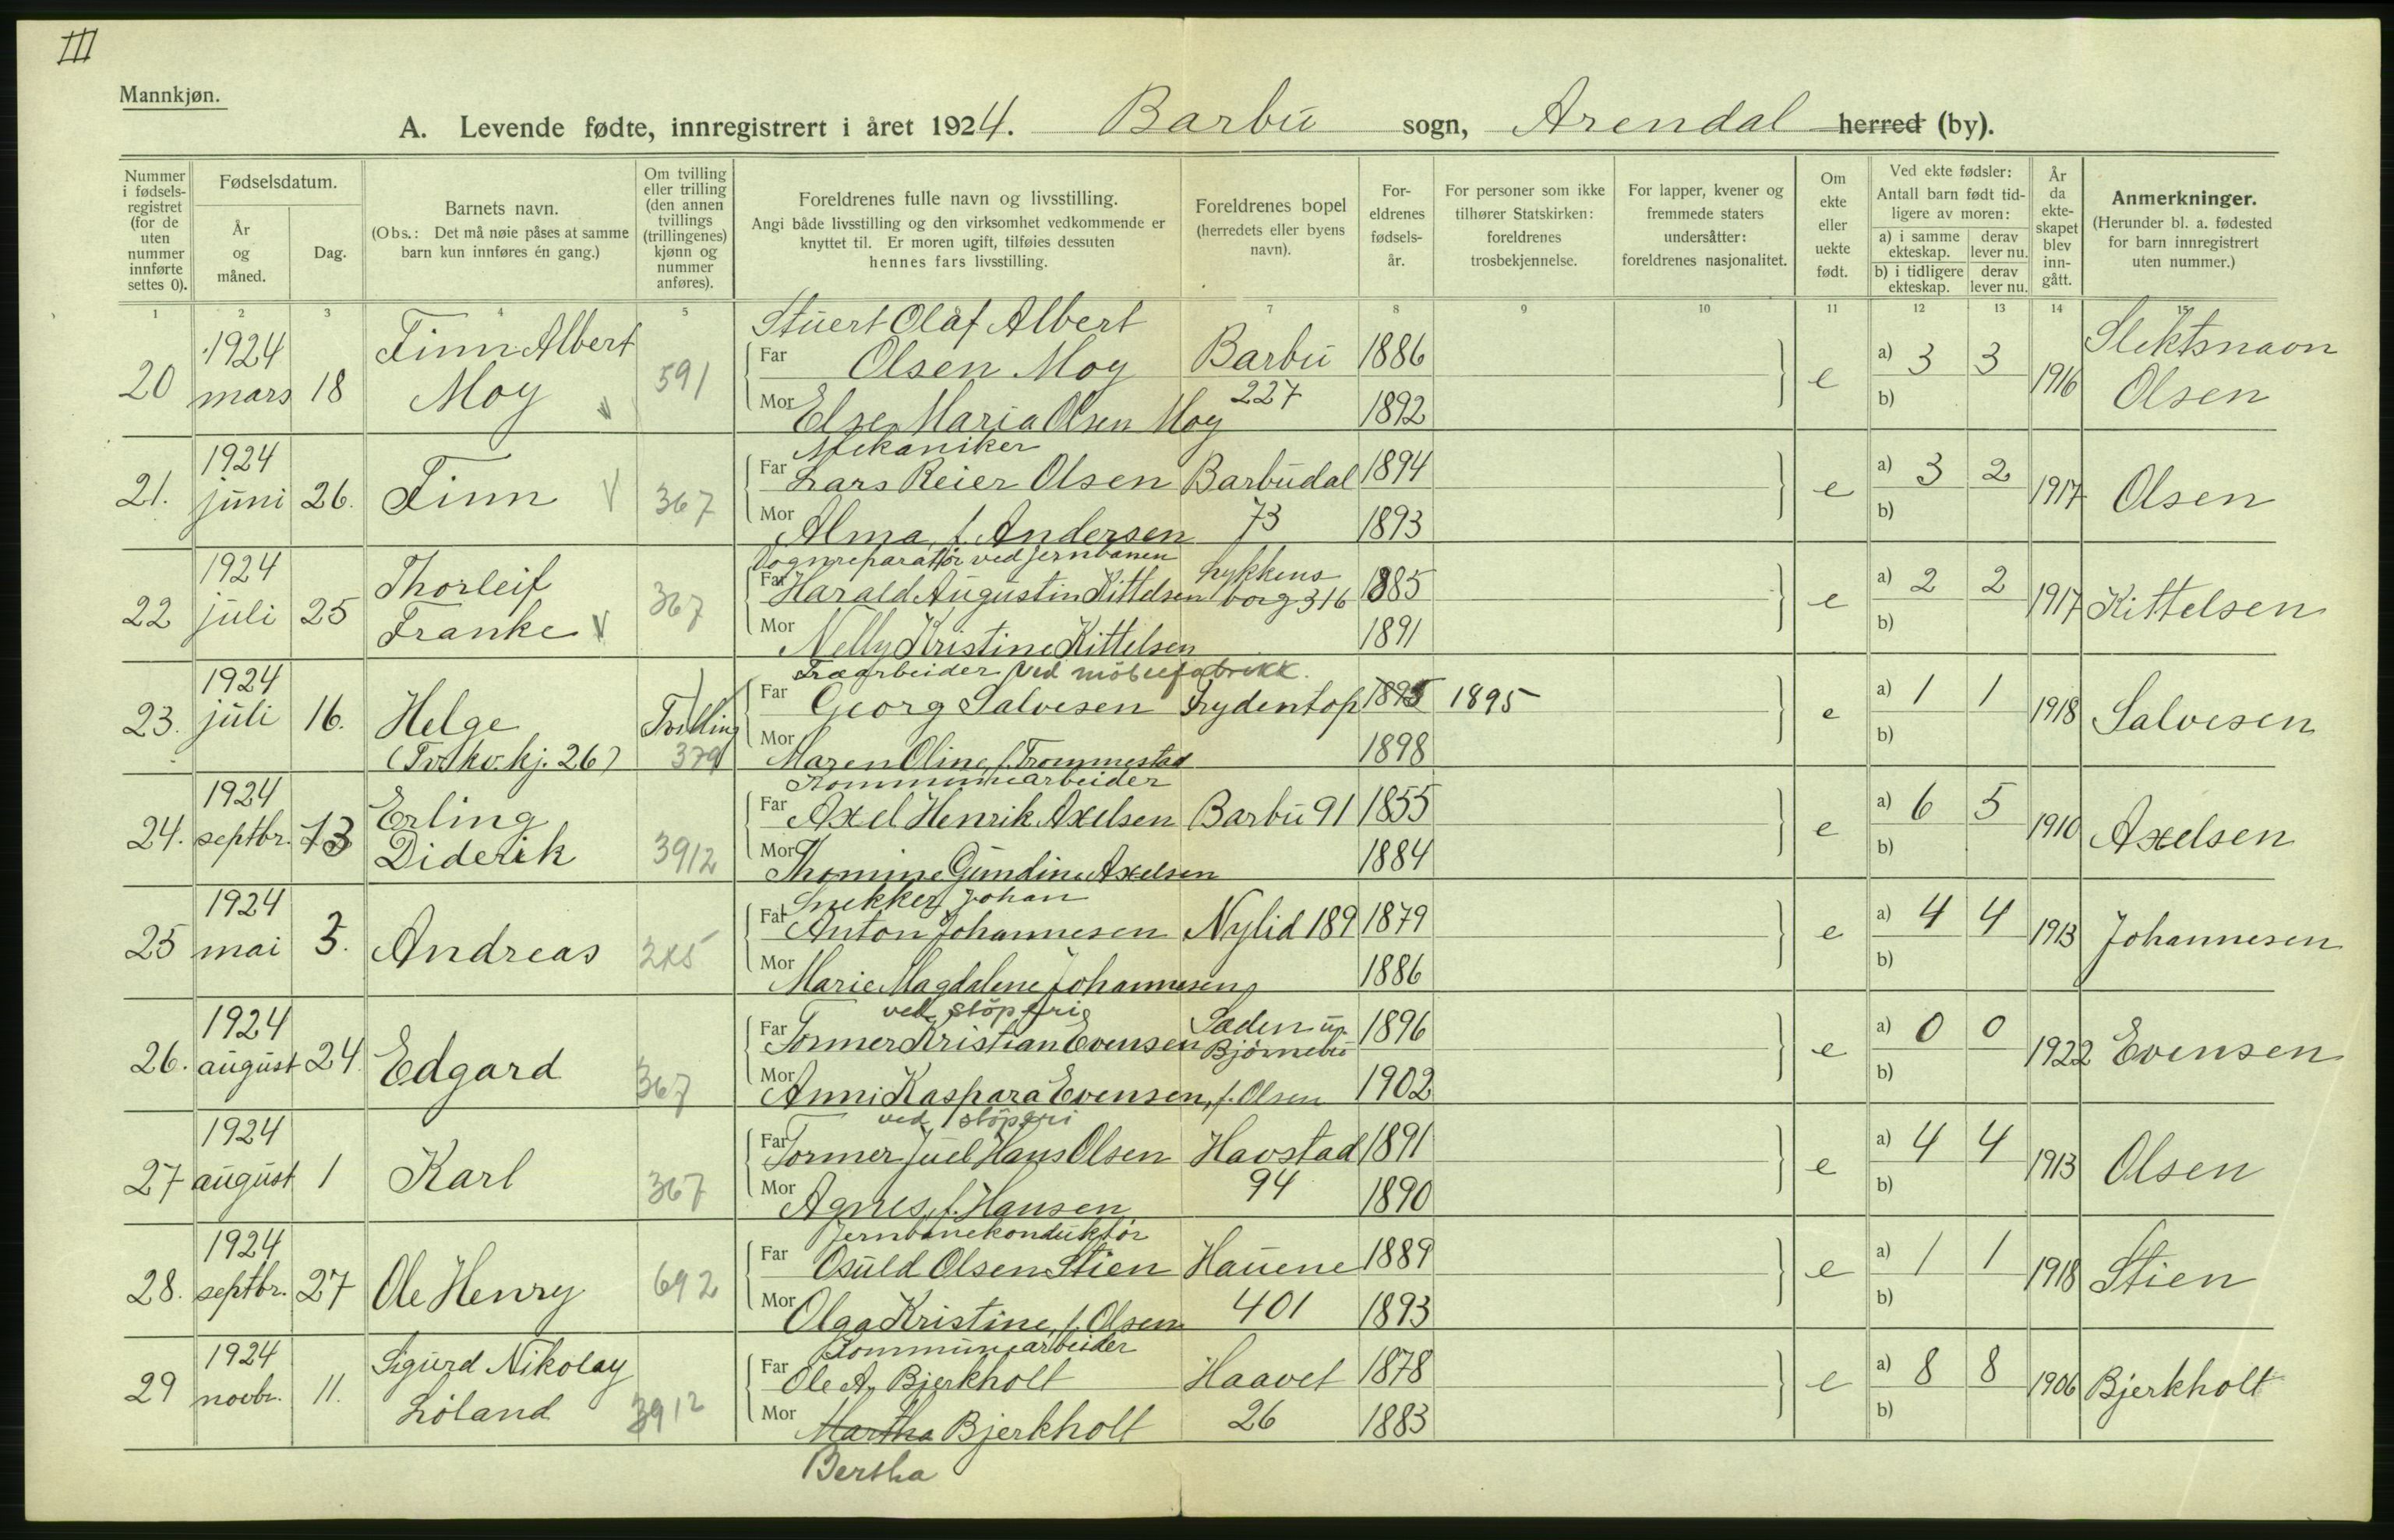 III
Mannkjøn.
A. Levende fødte, innregistrert i året 1924. Barbu sogn, Arendal herred (by).
Nummer i fødselsregistret (for de uten nummer innførte settes 0).
Fødselsdatum.
År og måned.
Dag.
Barnets navn.
(Obs.: Det må nøie påses at samme barn kun innføres én gang.)
Om tvilling eller trilling (den annen tvillings (trillingenes) kjønn og nummer anføres).
Foreldrenes fulle navn og livsstilling.
Angi både livsstilling og den virksomhet vedkommende er knyttet til. Er moren ugift, tilføies dessuten hennes fars livsstilling.
Foreldrenes bopel (herredets eller byens navn).
Foreldrenes fødselsår.
For personer som ikke tilhører Statskirken: foreldrenes trosbekjennelse.
For lapper, kvener og fremmede staters undersåtter: foreldrenes nasjonalitet.
Om ekte eller uekte født.
Ved ekte fødsler: Antall barn født tidligere av moren:
a) i samme ekteskap. derav lever nu.
b) i tidligere ekteskap. derav lever nu.
År da ekteskapet blev inngått.
Anmerkninger.
(Herunder bl. a. fødested for barn innregistrert uten nummer.)
1 2 3 4 5 7 8 9 10 11 12 13 14 15
20 1924 mars 18 Finn Albert Moy V 591
Stuert Olaf Albert
Far Olsen Moy Barbu 1886
Mor Else Maria Olsen Moy 227 1892
e a) 3 3 b) 1916 Slektsnavn Olsen
21. 1924 juni 26. Finn V 367
Mekaniker
Far Lars Reier Olsen Barbudal 1894
Mor Alma, f. Andersen 73 1893
e a) 3 2 b) 1917 Olsen
22 1924 juli 25 Thorleif Franke V 367
Vognreparatør ved jernbanen
Far Harald Augustin Kittelsen Lykkensborg 316 1885
Mor Nelly Kristine Kittelsen 1891
e a) 2 2 b) 1917 Kittelsen
23. 1924 juli 16. Helge (Tv. kv.kj. 26) Tvilling 379
Træarbeider ved möbelfabrikk.
Far Georg Salvesen Frydentop 1895 1895
Mor Maren Oline, f. Trommestad 1898
e a) 1 1 b) 1918 Salvesen
24. 1924 septbr. 13 Erling Diderik 3912
Kommunearbeider
Far Axel Henrik Axelsen Barbu 91 1855
Mor Thomine Gundine Axelsen 1884
e a) 6 5 b) 1910 Axelsen
25 1924 mai 3. Andreas
Snekker Johan
Far Anton Johannesen Nylid 189 1879
Mor Marie Magdalene Johannesen 1886
e a) 4 4 b) 1913 Johannesen
26. 1924 august 24. Edgard 367
ved støperi
Far Former Kristian Evensen Saden u. Bjørnebu 1896
Mor Anni Kaspara Evensen, f. Olsen 1902
e a) 0 0 b) 1922 Evensen
27 1924 august 1 Karl 367
ved støperi
Far Former Juel Hans Olsen Havstad 1891
Mor Agnes, f. Hansen 94 1890
e a) 4 4 b) 1913 Olsen
28. 1924 septbr. 27 Ole Henry 692
Jernbanekonduktør
Far Osuld Olsen Stien Hauene 1889
Mor Olga Kristine, f. Olsen 401 1893
e a) 1 1 b) 1918 Stien
29 1924 novbr. 11. Sigurd Nikolay Löland 3912
Kommunearbeider
Far Ole A. Bjerkholt Haavet 1878
Mor Martha Bjerkholt 26 1883
Bertha
e a) 8 8 b) 1906 Bjerkholt